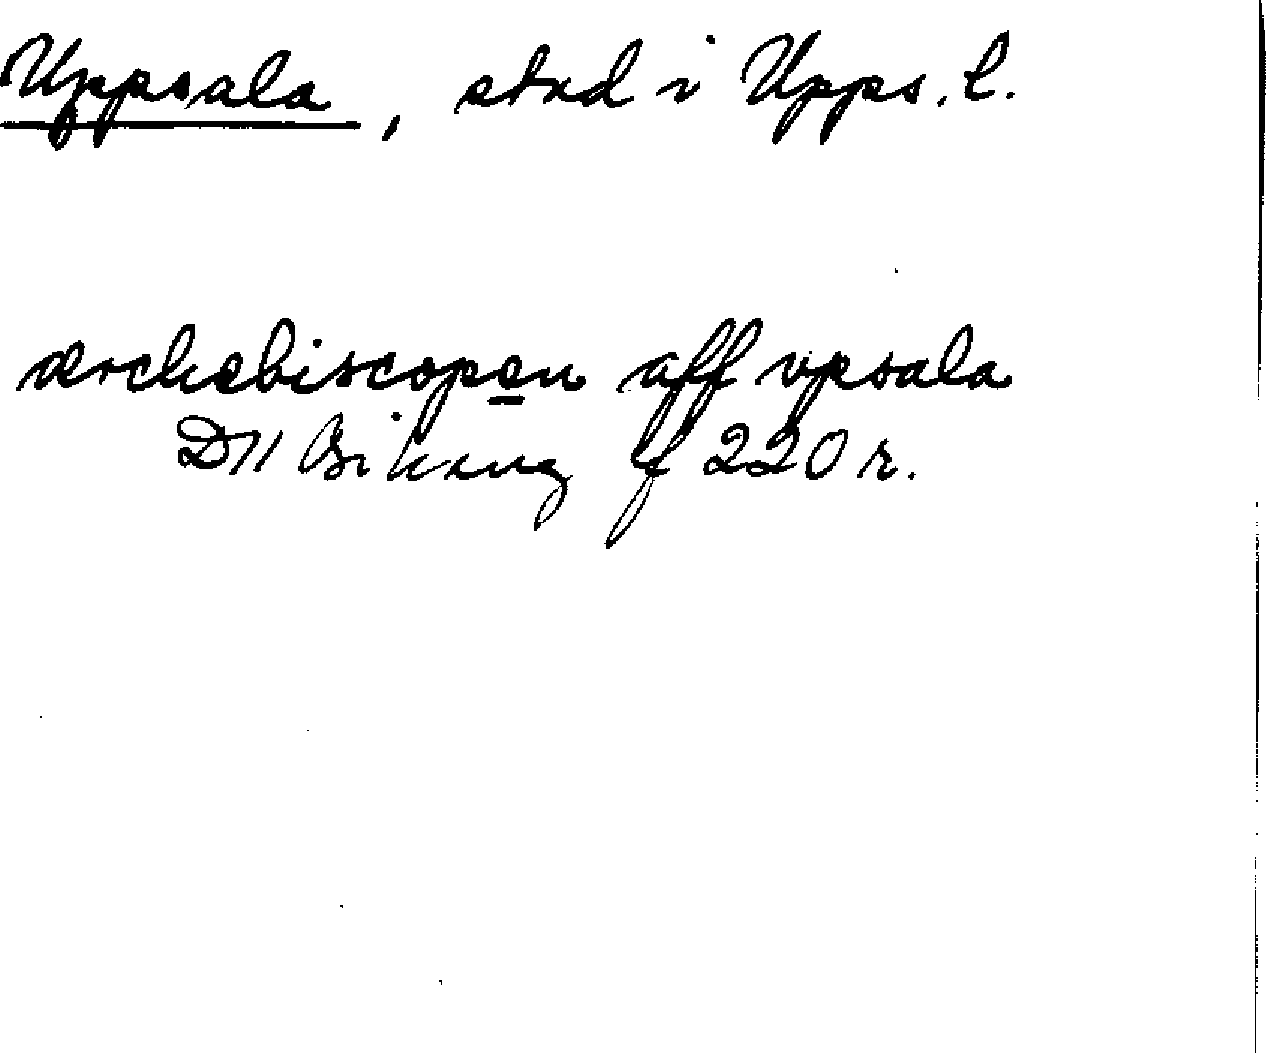 Uppsala, stad i Upps. l.
ærchebiscopen aff vpsala
DII Bihang f 220 r.